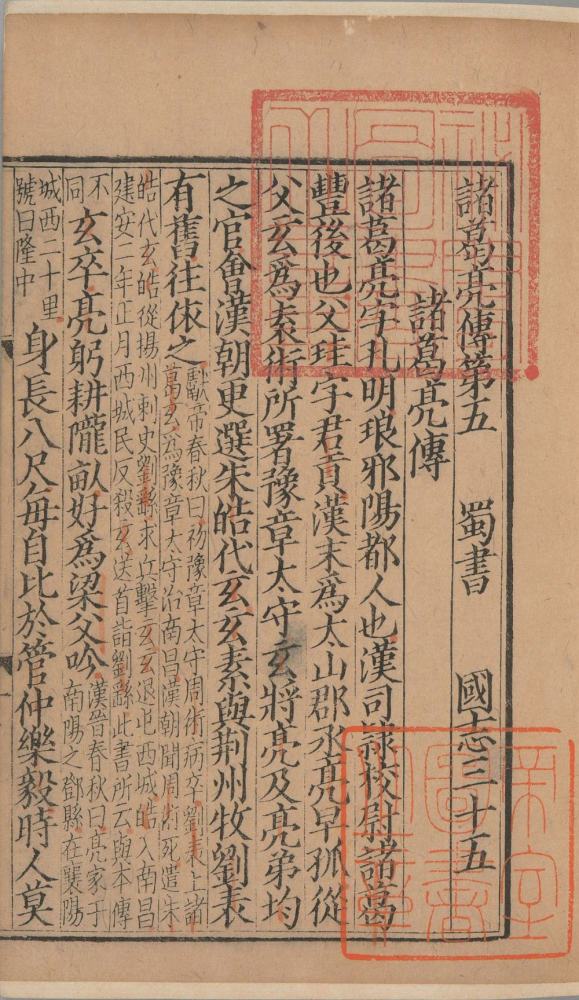 諸葛亮傳第五 蜀書 國志三十五
諸葛亮傳
諸葛亮字孔明琅邪陽都人也漢司隸校尉諸葛
豐後也父珪字君貢漢末爲太山郡丞亮早孤從
父玄爲袁術所署豫章太守玄將亮及亮弟均
之官會漢朝更選朱皓代玄玄素與荆州牧劉表
有舊往依之
獻帝春秋曰初豫章太守周術病卒劉表上諸
葛玄爲豫章太守治南昌漢朝聞周術死遣朱
皓代玄皓從揚州刺史劉繇求兵擊玄玄退屯西城皓入南昌
建安二年正月西城民反殺玄送首詣劉繇此書所云與本傳
不
同
玄卒亮躬耕隴畝好爲梁父吟
漢晉春秋曰亮家于
南陽之鄧縣在襄陽
城西二十里
號曰隆中
身長八尺每自比於管仲樂毅時人莫
帝室
圖書
之章